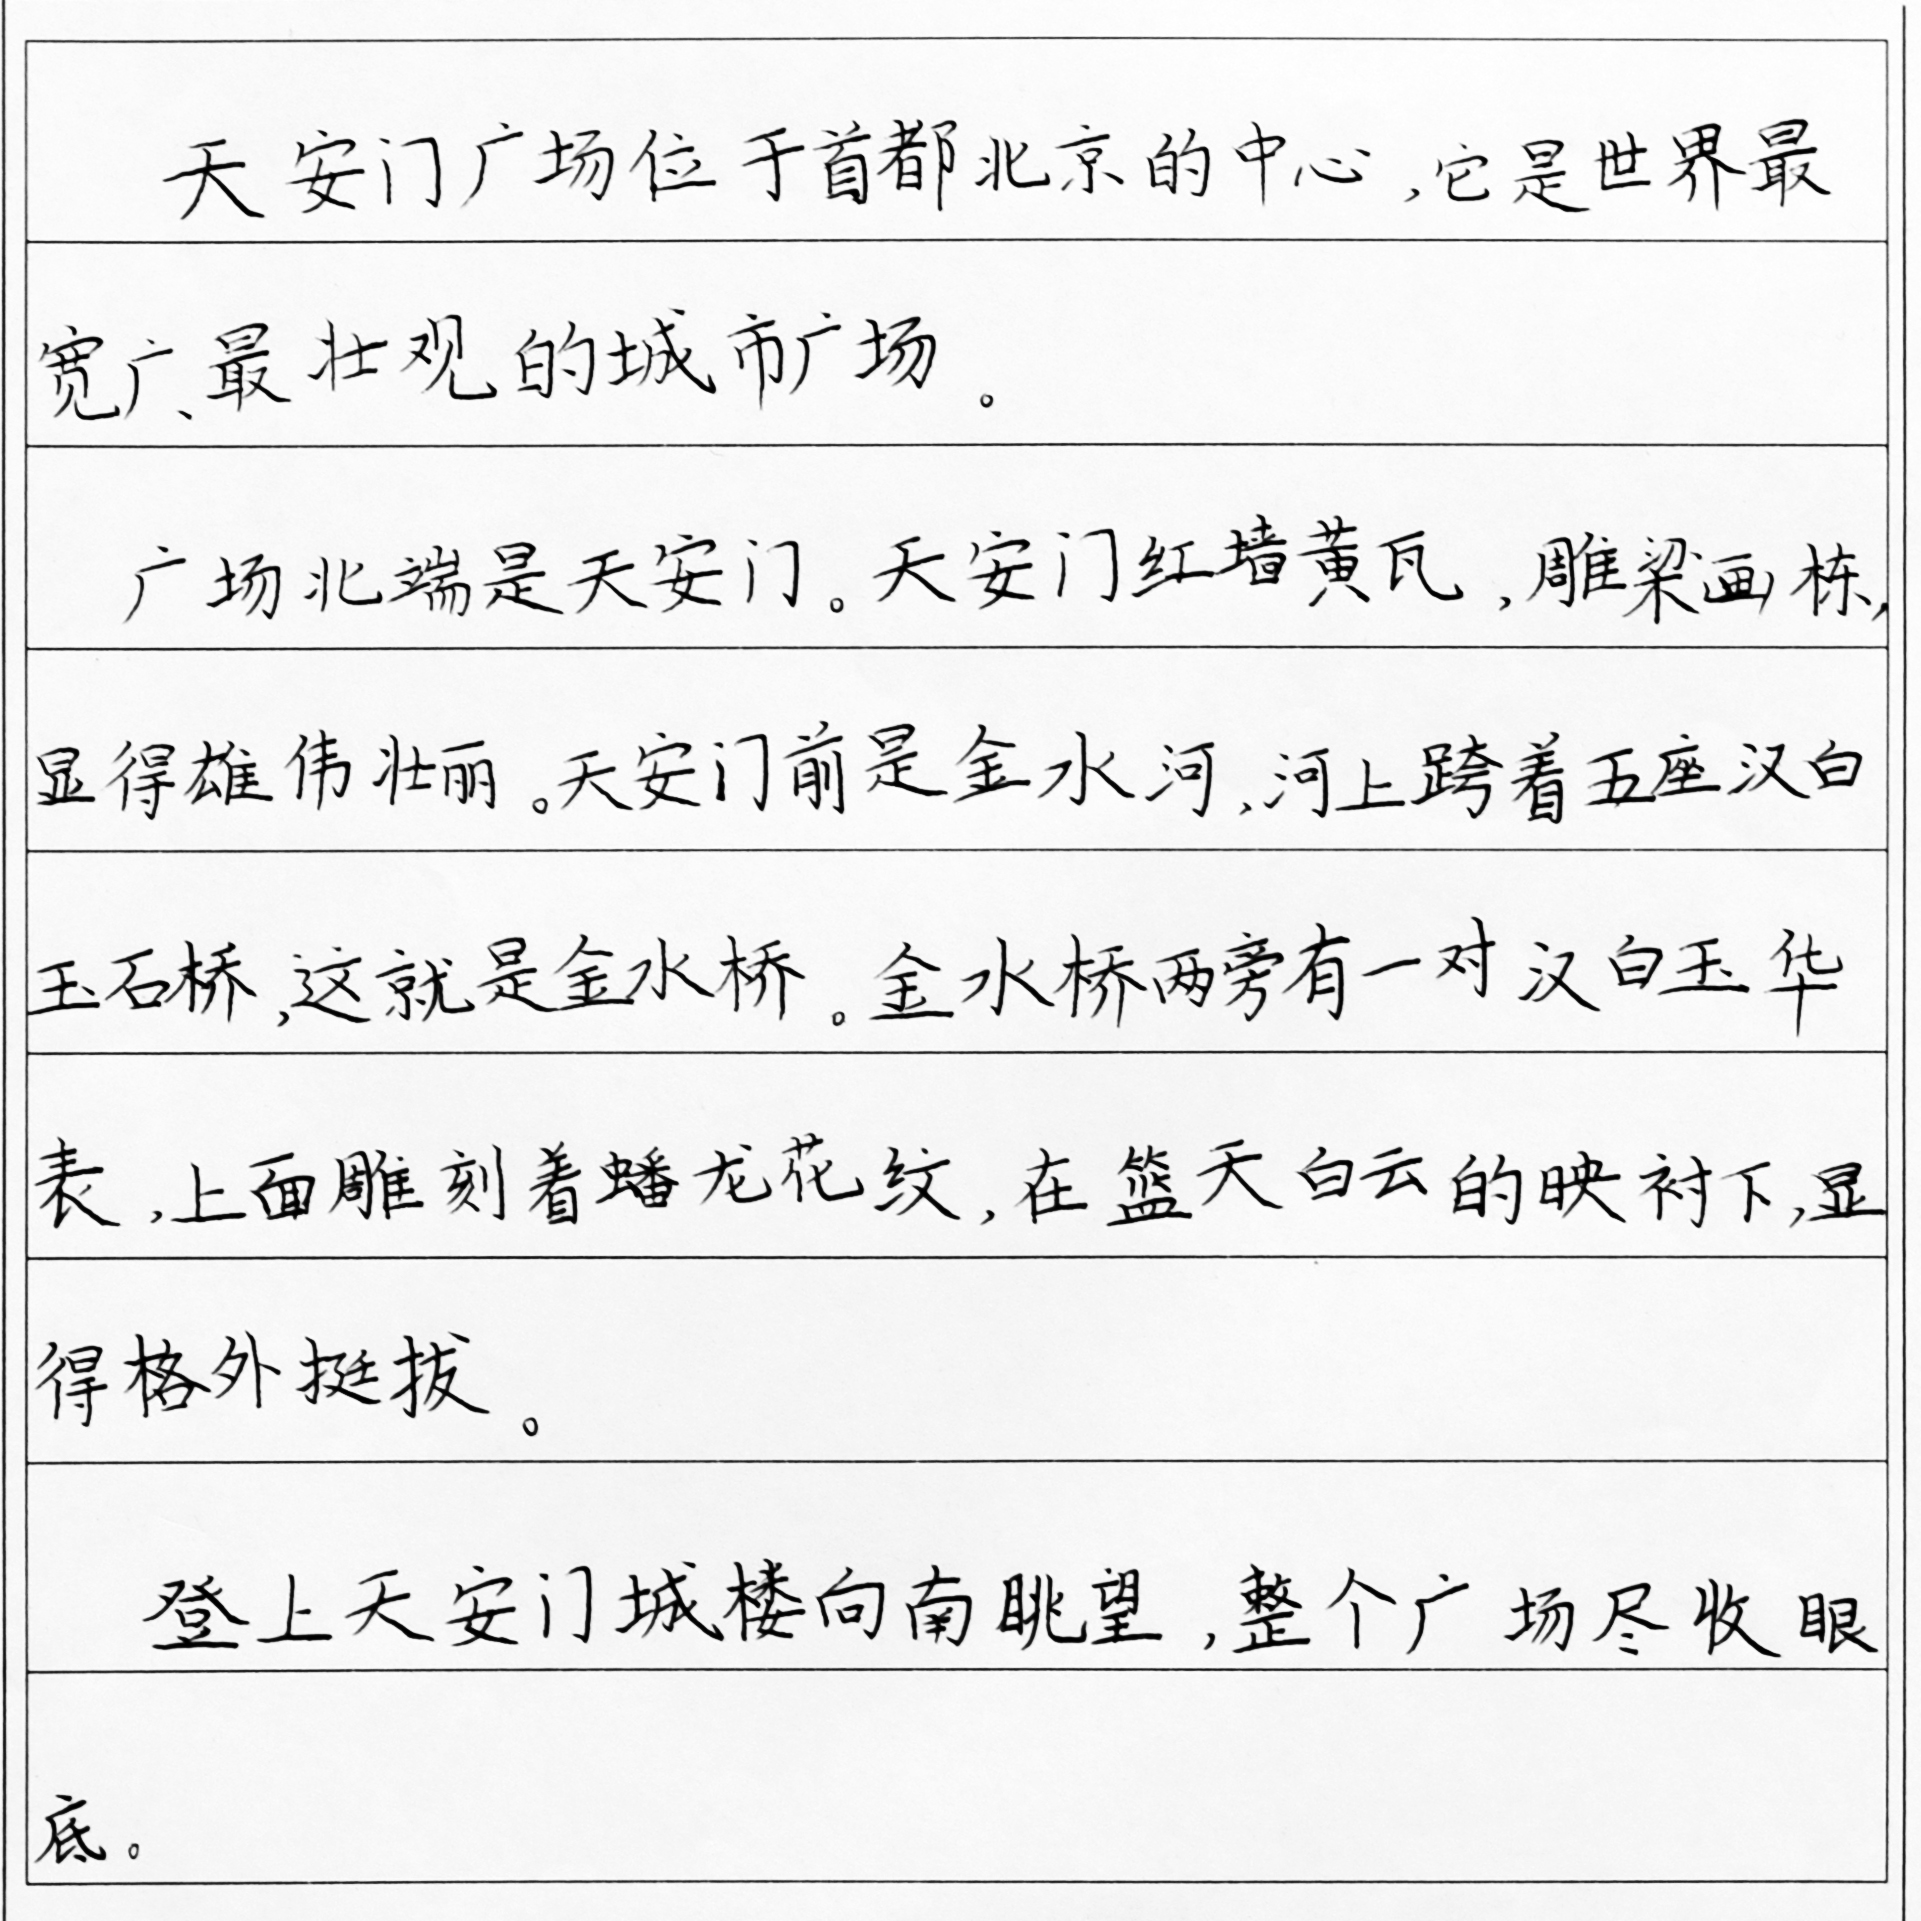 天安门广场位于首都北京的中心,它是世界最
宽广、最壮观的城市广场。
广场北端是天安门。天安门红墙黄瓦,雕梁画栋,
显得雄伟壮丽。天安门前是金水河,河上跨着五座汉白
玉石桥,这就是金水桥。金水桥两旁有一对汉白玉华
表,上面雕刻着蟠龙花纹,在篮天白云的映衬下,显
得格外挺拔。
登上天安门城楼向南眺望,整个广场尽收眼
底。